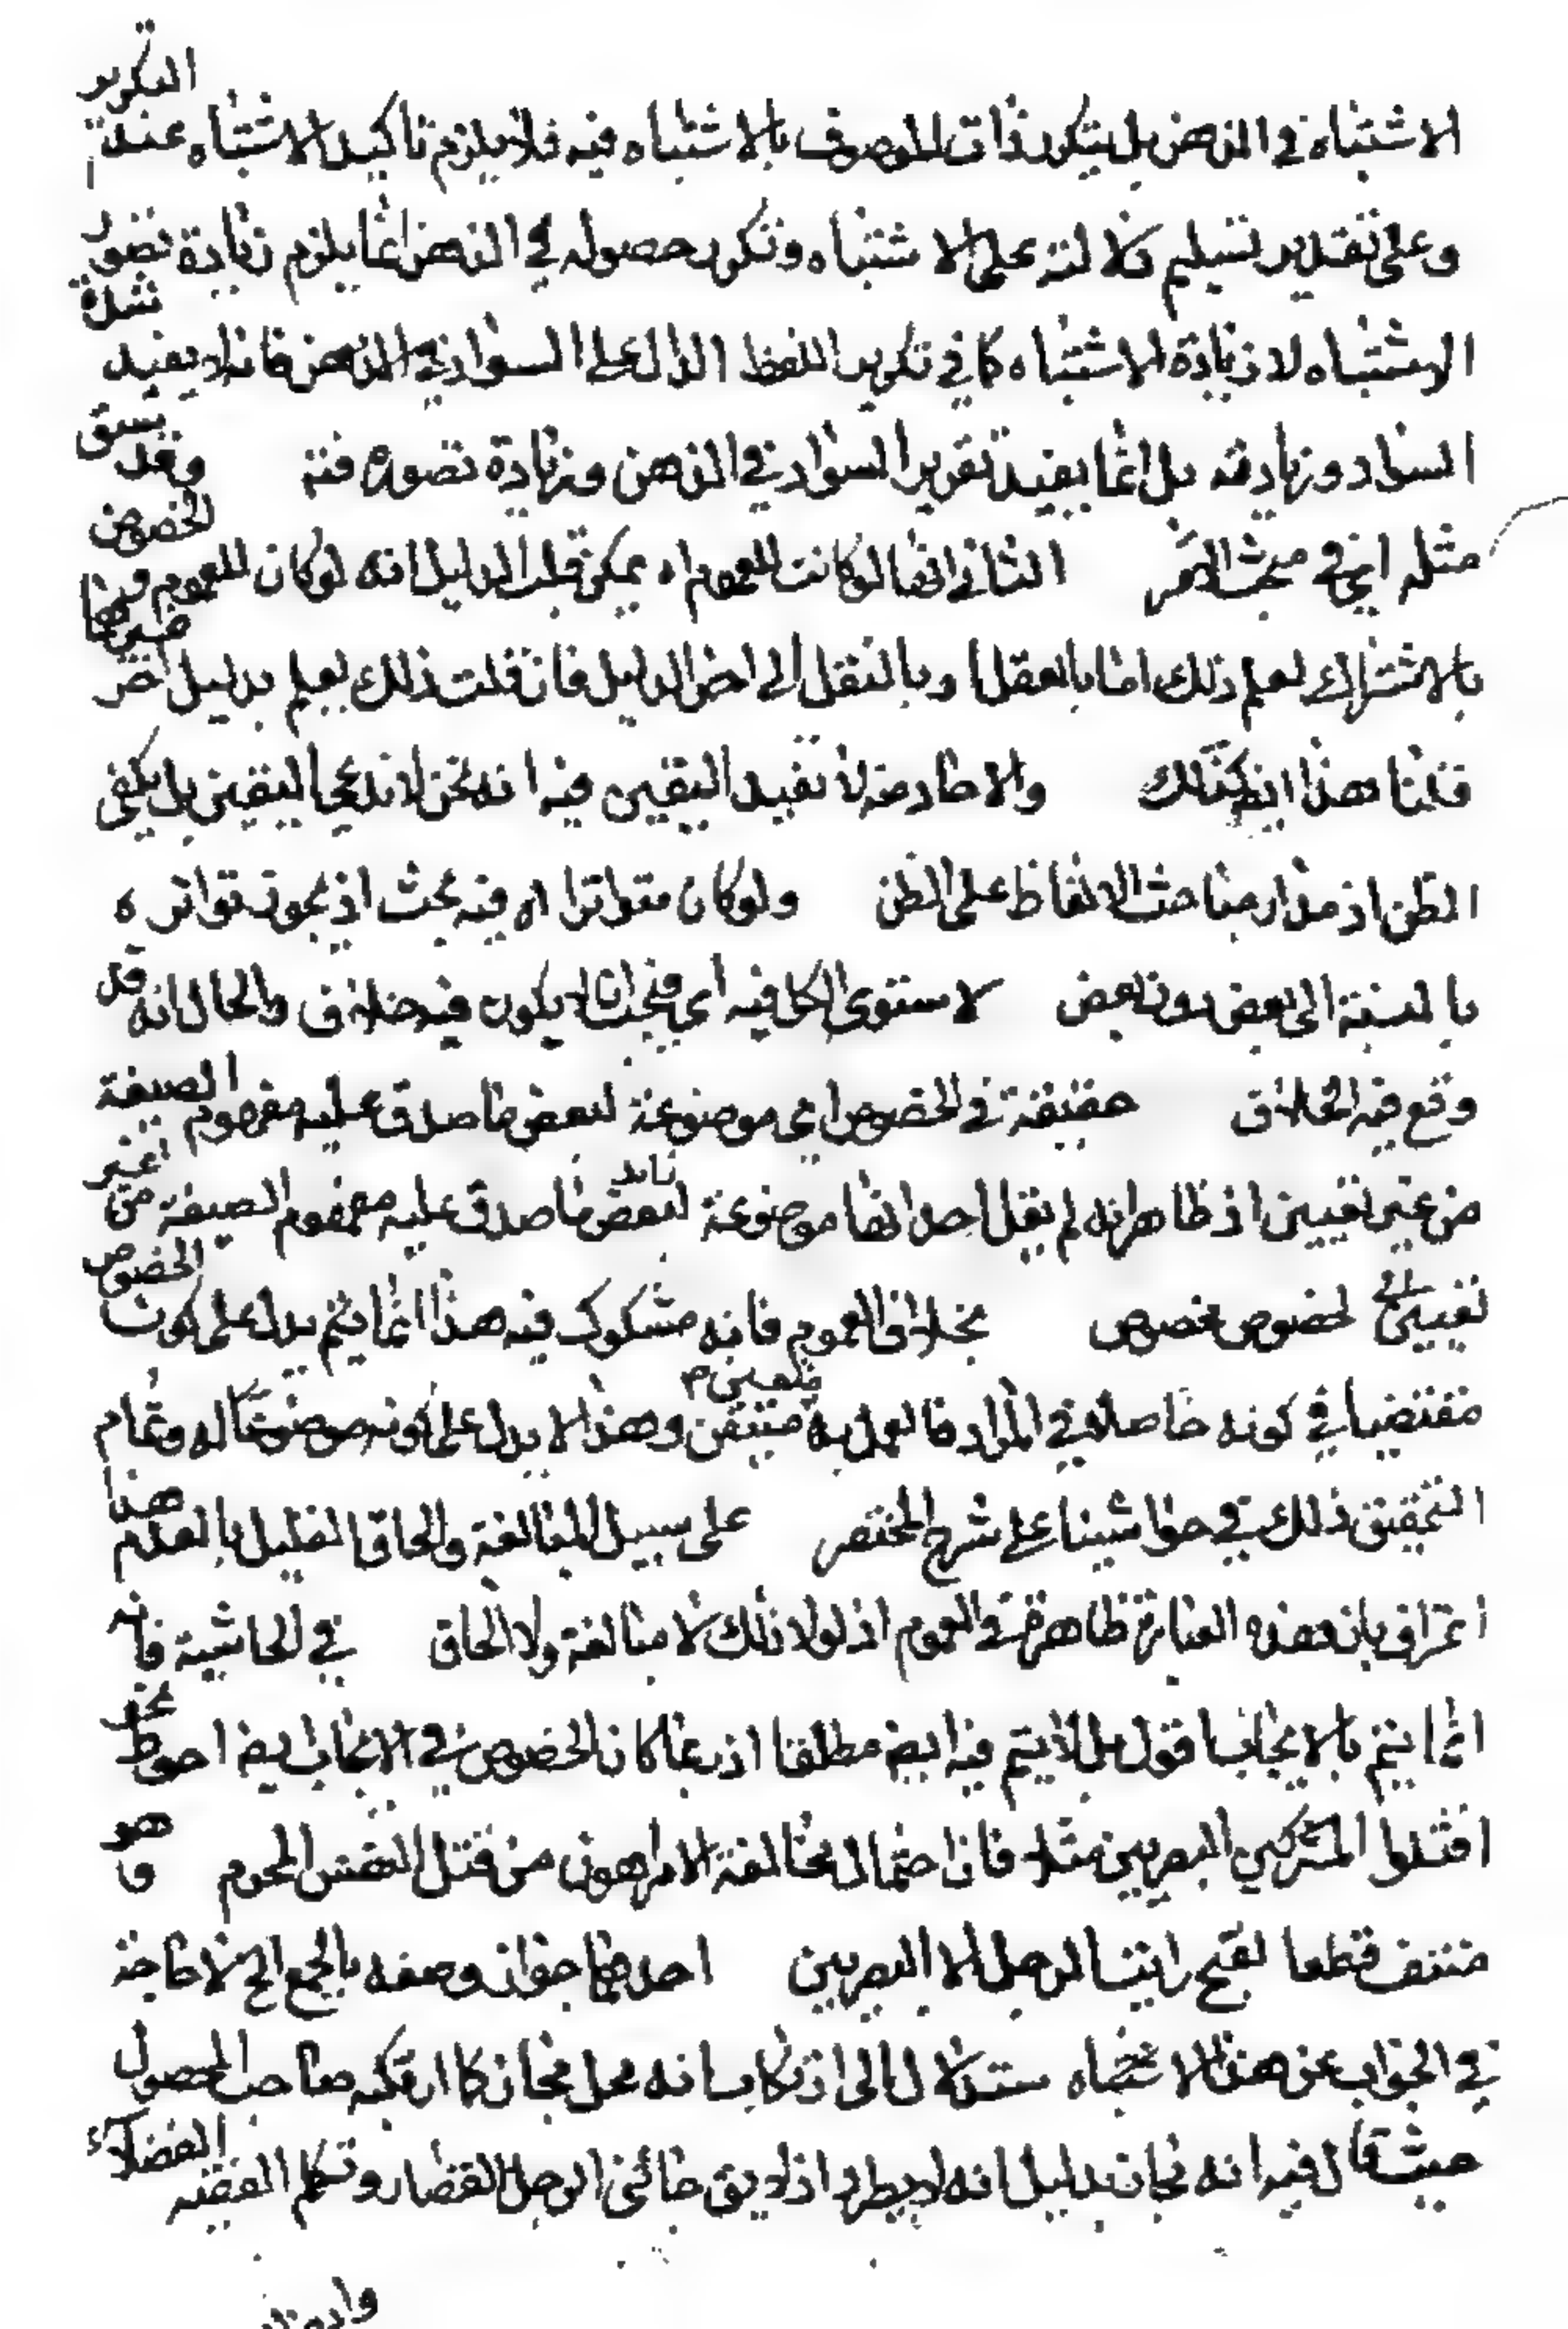 الاشتباه في الذهن بل يتكرر ذات الموصوف بالاشتباه فيه فلا يلزم تأكيد الاشتباه عند التكرير
وعلى تقدير تسليم دلالته على الاشتباه وتكرر حصوله في الذهن انما يلزم زيادة تصور
الاشتباه لا زيادة الاشتباه كما في تكرير اللفظ الدال على السواد في الذهن فانه لا يفيد شدة
السواد وزيادته بل انما يفيد تقرير السواد في الذهن وزيادة تصوره فته وقد سبق
مثله ايض في مبحث الامر الثاني انها لو كانت للعموم اه يمكن قلب الدليل انه لو كان للخصوص
بالاشتراك لعلم ذلك اما بالعقل او بالنقل الى اخر الدليل فان قلت ذلك يعلم بدليل اخر
قلنا هذا ايض كذلك والاحاد منه لا تفيد اليقين فيه انه نحن لا ندعي اليقين بل يكفي
الظن اذ مدار مباحث الالفاظ على الظن ولو كان متواترا اه فيه بحث اذ يجوز تواتره
بالنسبة الى بعض دون بعض لاستوى الكل فيه اي فيجب ان لا يكون فيه خلاف والحال انه قد
وقع فيه الخلاف حقيقة في الخصوص اي موضوعة لبعض ما صدق عليه مفهوم الصيغة
من غير تعيين اذ ظاهر انه لم يقل احد انها موضوعة لبعض ما صدق عليه مفهوم الصيغة من غير
تعيين لخصوص مخصوص بخلاف العموم فانه مشكوك فيه هذا انما يتم يدل على كون الخصوص
مقتضيا في كونه حاصلا في المراد فالعمل به متيقن وهذا لا يدل على كونه موضوعا له وتمام
التحقيق ذلك في حواشينا على شرح المختصر على سبيل المبالغة والحاق القليل بالعدم هذا
اعتراف بان هذه العبارة ظاهرة في العموم اذ لولا ذلك لا مبالغة ولا الحاق في الحاشية فانه
انما يتم بالايجاب اقول بل لا يتم فيه ايض مطلقا اذ ربما كان الخصوص في الايجاب ايض احوط نحو
اقتلوا المشركين البصريين مثلا فان احتمال مخالفة الامر اهون من قتل النفس المحرم وهو
منتف قطعا لقبح رايت الرجل الا البصريين احدهما جواز وصفه بالجمع الخ لا حاجة
في الجواب عن هذا الاستدلال الى ارتكاب انه محل مجاز كما ارتكبه صاحب المحصول
حيث قال فيه انه مجاز بدليل انه لا يطرد اذ لا يق جائني الرجل القصار وتكلم الفقيه الفضلاء